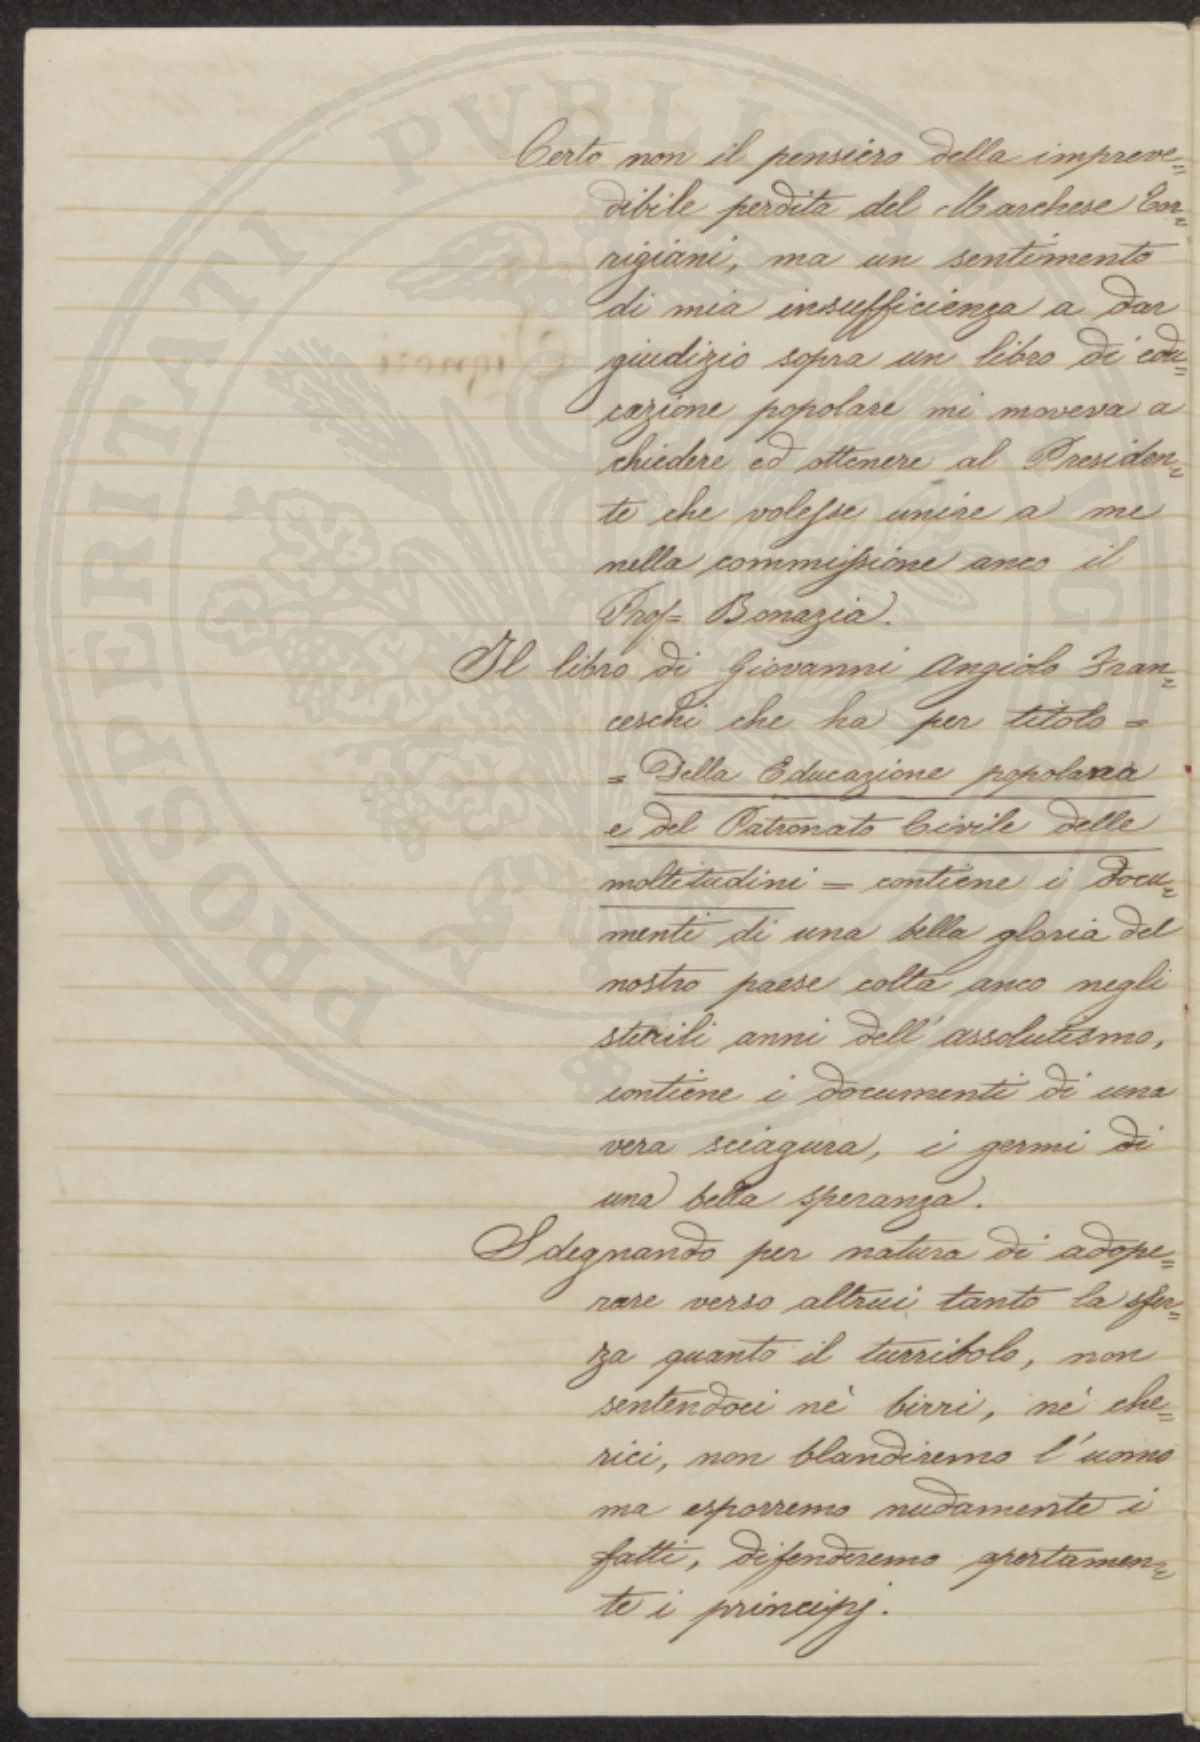 Certo non il pensiero della impreve=
dibile perdita del Marchese Tor=
rigiani, ma un sentimento
di mia insufficienza a dar
giudizio sopra un libro di edu=
cazione popolare mi moveva a
chiedere ed ottenere al Presiden=
te che volesse unire a me
nella commissione anco il
Prof= Bonazia.
Il libro di Giovanni Angiolo Fran=
ceschi che ha per titolo =
= Della Educazione popolare
e del Patronato Civile delle
moltitudini = contiene i docu=
menti di una bella gloria del
nostro paese colta anco negli
sterili anni dell' assolutismo,
contiene i documenti di una
vera sciagura, i germi di
una bella speranza.
Sdegnando per natura di adope=
rare verso altrui tanto la sfer=
za quanto il turribolo, non
sentendoci nè birri, nè che=
rici, non blandiremo l' uomo
ma esporremo nudamente i
fatti, difenderemo apertamen=
te i principj.
PROSPERITATI PVBLICAE AVGENDAE